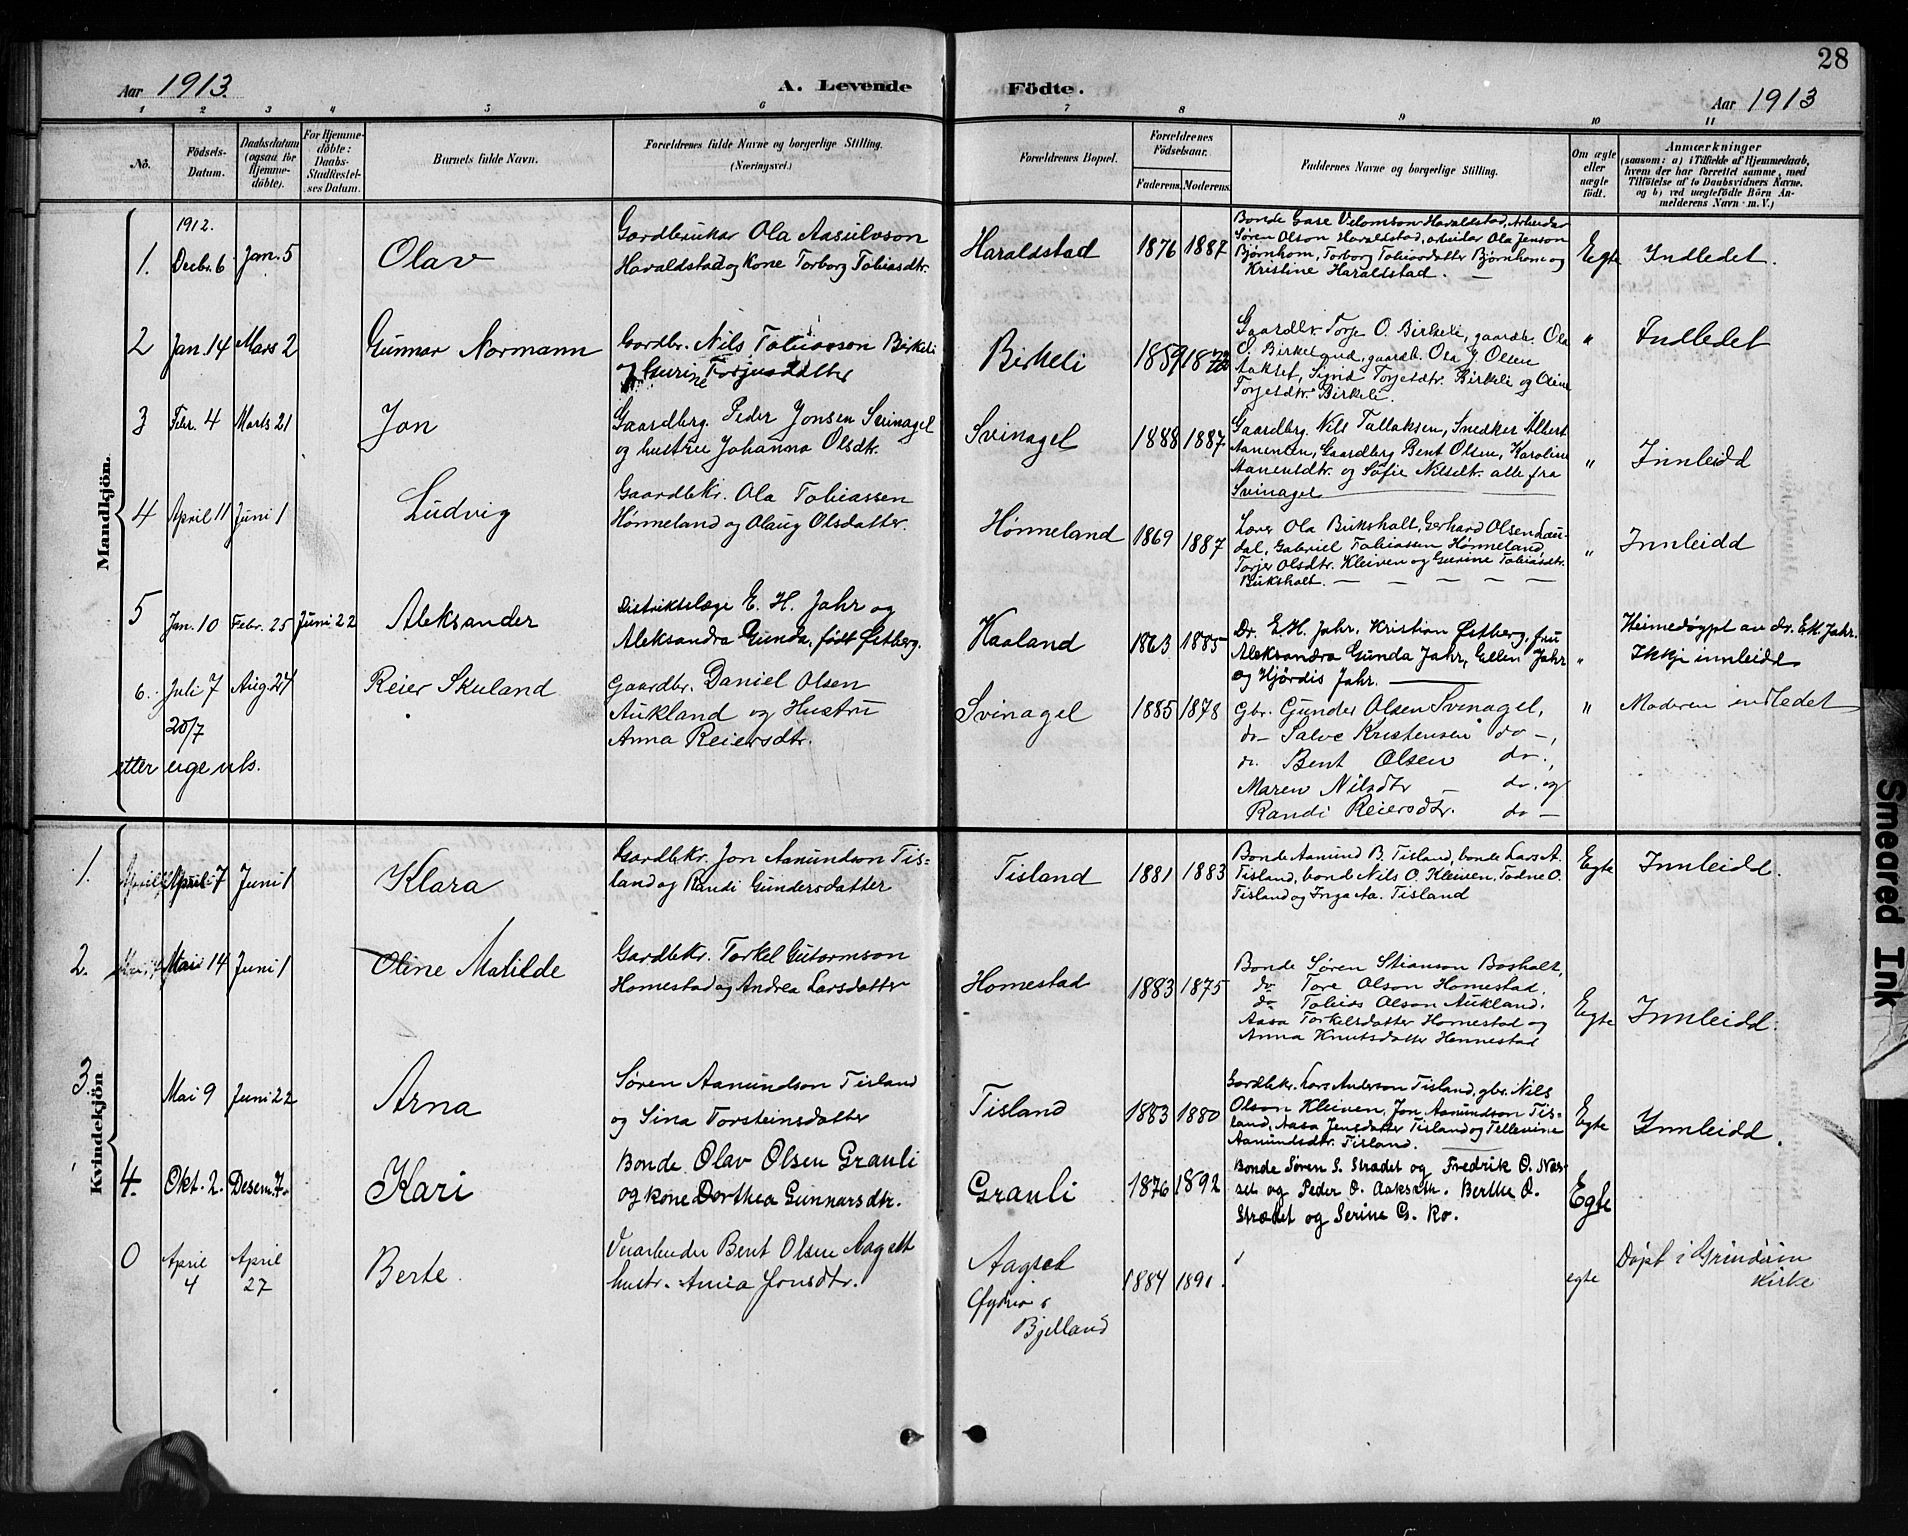 28
Aar 1913.
A. Levende
Födte.
Aar 1913
1 2 3 4 5 6 7 8 9 10 11
No.
Fødsels-
Datum.
Daabsdatum
(ogsaa for
Hjemme-
döbte).
For Hjemme-
döbte:
Daabs-
Stadfæstel-
ses Datum.
Barnets fulde Navn.
Forældrenes fulde Navne og borgerlige Stilling.
(Næringsvei.)
Forældrenes Bopæl.
Forældrenes
Födselsaar.
Faderens. Moderens.
Faddernes Navne og borgerlige Stilling.
Om ægte
eller
uægte
födt.
Anmærkninger
(saasom: a) i Tilfælde af Hjemmedaab,
hvem der har forrettet samme, med
Tilföielse af to Daabsvidners Navne.
og b) ved uægtefödte Börn An-
melderens Navn m. V.)
Mandkjön.
1912.
1. Decbr. 6 Jan. 5
Olav
Gardbrukar Ola Aasulvson
Haraldstad og Kone Torborg Tobiasdtr.
Haraldstad
1876 1887
Bonde Haraldstad, Arbeidar
Søren Olson Haraldstad, arbeidar Ola Jenson
Bjørnhom, Torborg Tobiasdatter Bjørnhom og
Kristine Haraldstad. —
Egte
Indledet.
2 Jan. 14 Mars 2
Gunnar Normann
Gardbr. Nils Tobiasson Birkeli
og Gurine Torjusdatter
Birkeli
1859 1872
Gaardbr. Torje O. Birkeli, gaardb. Ola
O. Birkeland, gaardb. Ola J. Olsen
Aakset, Sigrid Torjesdtr. Birkeli og Oline
Torjesdtr. Birkeli.
"
Indledet
3 Febr. 4 Marts 21
Jon
Gaardbrg. Peder Jonsen Svinagel
og hustru Johanna Olsdtr.
Svinagel
1888 1887
Gaardbrg. Nils Tallaksen, Snedker Albert
Aanensen, Gaardbrg Bent Olsen, Karoline
Aanensdtr. og Sofie Nilsdtr. alle fra
Svinagel
"
Innleidd
4 April 11 Juni 1
Ludvig
Gaardbkr. Ola Tobiassen
Hønneland og Olaug Olsdatter.
Hønneland
1869 1887
Lærer Ola Buksholt, Gerhard Olsen Lau-
dal, Gabriel Tobiassen Hønneland,
Torjer Olsdtr. Kleiven og Gurine Tobiasdtr.
Buksholt. — — — — —
"
Innleidd
5 Jan. 10 Febr. 25 Juni 22
Aleksander
Distriktslæge E. H. Jahr og
Aleksandra Gunda, født Østberg.
Kaaland
1863 1885
Dr. E. H. Jahr, Kristian Østberg, fru
Aleksandra Gunda Jahr, Ellen Jahr
og Hjørdis Jahr.
"
Heimedøypt av dr. E.H. Jahr.
Ikkje innleidd
6. Juli 7 Aug 24
20/7
etter eige uts.
Reier Skuland
Gaardbr. Daniel Olsen
Aukland og Hustru
Anna Reiersdtr.
Svinagel
1885 1878
Gbr. Gunder Olsen Svinagel,
do – Salve Kristensen do –,
do. Bent Olsen do.,
Maren Nilsdtr – do. og
Randi Reiersdtr. do –
"
Moderen indledet
Kvindekjön
1. April 7 Juni 1
Klara
Gardbkr. Jon Aanundson Tis-
land og Randi Gundersdatter
Tisland
1881 1883
Bonde Aanund B. Tisland, bonde Lars A.
Tisland, bonde Nils O. Kleiven, Todne O.
Tisland og Inga Aa. Tisland
Egte
Innleidd.
2. Mai 14 Juni 1
Oline Matilde
Gardbkr. Torkel Gutormson
Homestad og Andrea Larsdatter
Homestad
1883 1875
Bonde Søren Stianson Bosholt,
do Tore Olson Homestad,
do Tobias Olson Aukland,
Aasa Torkelsdatter Homestad og
Anna Knutsdatter Hennestad
Egte
Innleidd.
3. Mai 9 Juni 22
Arna
Søren Aanundson Tisland
og Sina Torsteinsdatter
Tisland
1883 1880
Gardbkr. Lars Anderson Tisland, gbr. Nils
Olson Kleiven, Jon Aanundson Tis-
land, Aasa Jensdatter Tisland og Tellevine
Aanundsdtr. Tisland.
Egte
Innleidd.
4. Okt. 2 Desem. 7.
Kari
Bonde Olav Olsen Grauli
og kone Dorthea Gunnarsdtr.
Grauli
1876 1892
Bonde Søren S. Strædet og Fredrik O. Nas-
set og Peder O. Berthe O.
Strædet og Serine G. Ro.
Egte
0 April 4 April 27
Berte
Bent Olsen Aagsett
hustr. Anna Jonsdtr.
Aagset
Øydna i
Bjelland
1884 1891.
egte
Døpt i Grindheim
Kirke
Smeared Ink